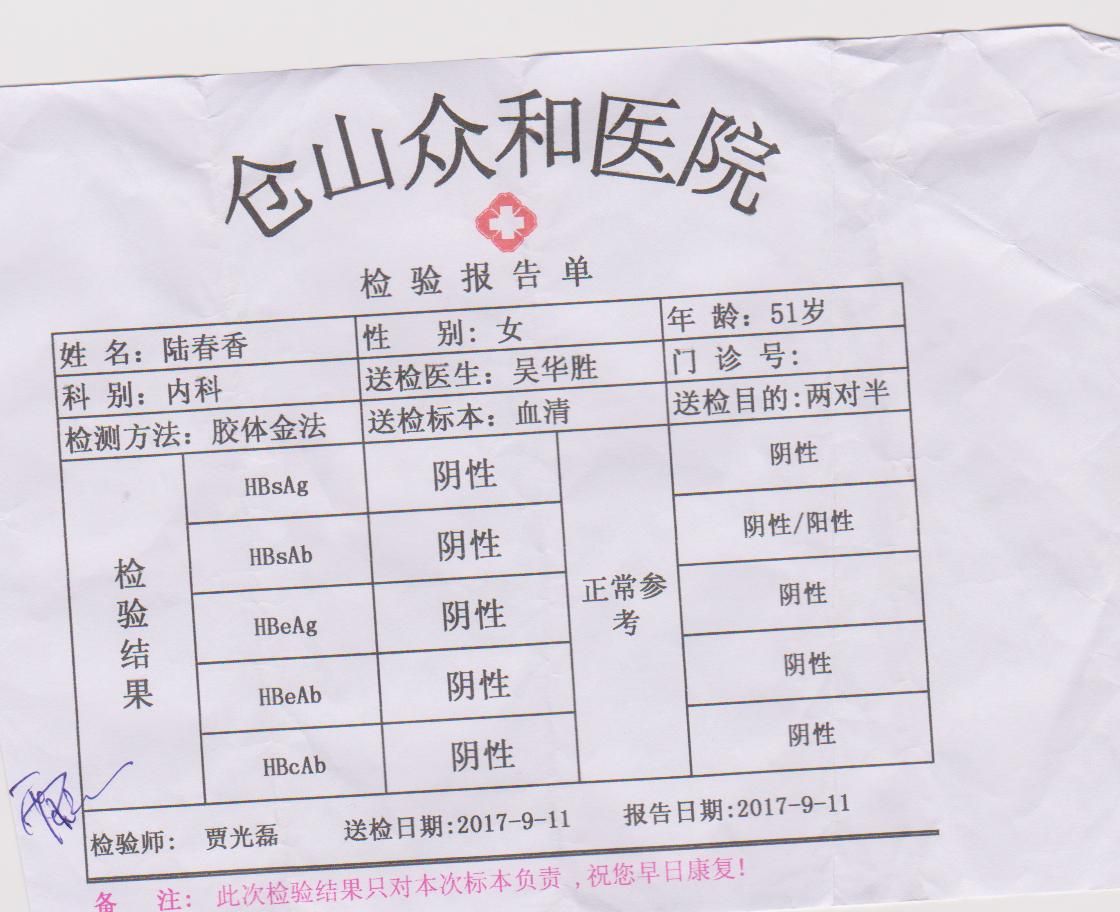 仓山众和医院
检验报告单
姓 名：陆春香 性 别：女 年 龄：51岁
科 别：内科 送检医生：吴华胜 门 诊 号：
检测方法：胶体金法 送检标本：血清 送检目的：两对半
检验结果 正常参考
HBsAg 阴性 阴性
HBsAb 阴性 阴性/阳性
HBeAg 阴性 阴性
HBeAb 阴性 阴性
HBcAb 阴性 阴性
检验师： 贾光磊 送检日期:2017-9-11 报告日期:2017-9-11
备 注: 此次检验结果只对本次标本负责,祝您早日康复!